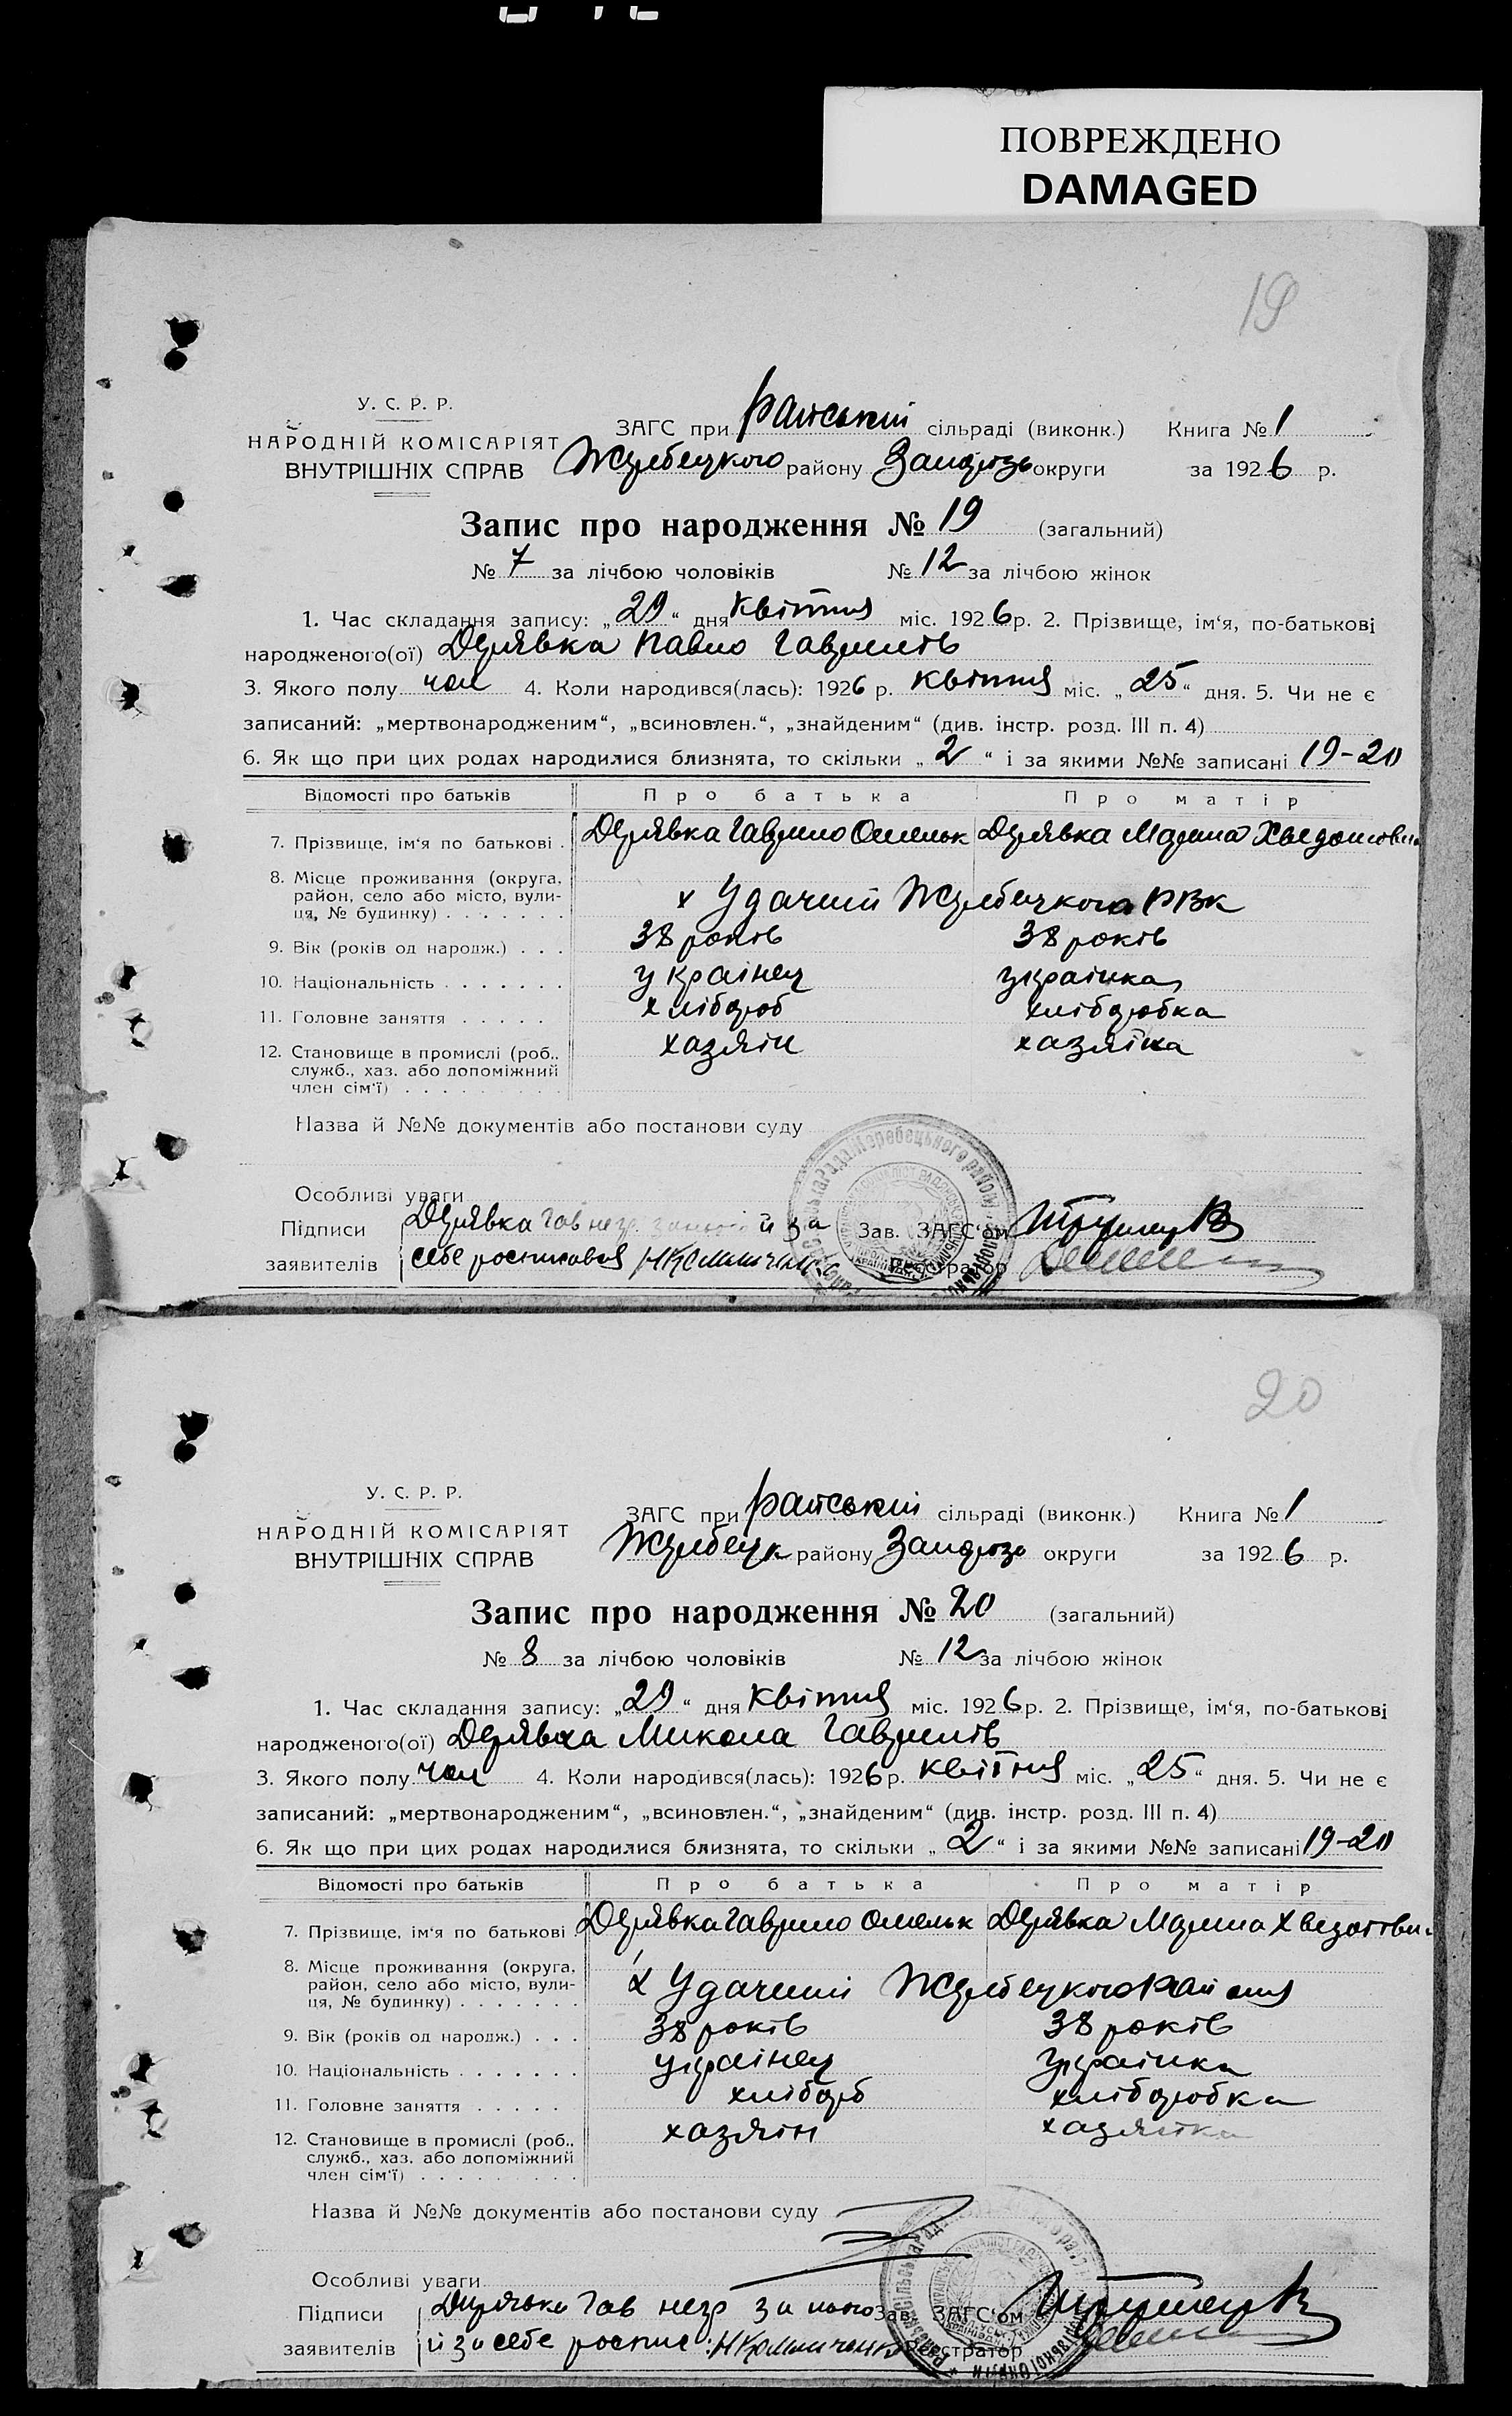 ПОВРЕЖДЕНО
DAMAGED
19
У. С. Р. Р.
НАРОДНІЙ КОМІСАРІЯТ
ВНУТРІШНІХ СПРАВ
ЗАГС при Райській сільраді (виконк.) Книга № 1
Жеребецкого району Запорозь округи за 1926 р.
Запис про народження № 19 (загальний)
№ 7 за лічбою чоловіків № 12 за лічбою жінок
1. Час складання запису: „29“ дня квітня міс. 1926 р. 2. Прізвище, ім‘я, по-батькові
народженого(ої) Дерявка Павло Гаврилів
3. Якого полу чол 4. Коли народився(лась): 1926 р. квітня міс. „25“ дня. 5. Чи не є
записаний: „мертвонародженим“, „всиновлен.“, „знайденим“ (див. інстр. розд. III п. 4)
6. Як що при цих родах народилися близнята, то скільки „2“ і за якими №№ записані 19-20
Відомості про батьків Про батька Про матір
7. Прізвище, ім‘я по батькові . Дерявка Гаврило Омельк Дерявка Марина
8. Місце проживання (округа,
район, село або місто, вули-
ця, № будинку) . . . . . . . х Удачний Жеребецкого РВК
9. Вік (років од народж.) . . . 38 років 38 років
10. Національність . . . . . . . українец українка
11. Головне заняття . . . . . хлібороб хліборобка
12. Становище в промислі (роб., хазяїн хазяїка
служб., хаз. або допоміжний
член сім‘ї) . . . . . . . . .
Назва й №№ документів або постанови суду
Особливі уваги
Підписи Дерявка Гав негр. й за Зав. ЗАГС‘ом
заявителів себе росписався Реєстратор
20
У. С. Р. Р.
НАРОДНІЙ КОМІСАРІЯТ
ВНУТРІШНІХ СПРАВ
ЗАГС при Райській сільраді (виконк.) Книга № 1
Жеребецк району Запорозь округи за 1926 р.
Запис про народження № 20 (загальний)
№ 8 за лічбою чоловіків № 12 за лічбою жінок
1. Час складання запису: „29“ дня квітня міс. 1926 р. 2. Прізвище, ім‘я, по-батькові
народженого(ої) Дерявка Микола Гаврилів
3. Якого полу чол 4. Коли народився(лась): 1926 р. квітня міс. „25“ дня. 5. Чи не є
записаний: „мертвонародженим“, „всиновлен.“, „знайденим“ (див. інстр. розд. III п. 4)
6. Як що при цих родах народилися близнята, то скільки „2“ і за якими №№ записані 19-20
Відомості про батьків Про батька Про матір
7. Прізвище, ім‘я по батькові Дерявка Гаврило Омельк Дерявка Марина
8. Місце проживання (округа,
район, село або місто, вули-
ця, № будинку) . . . . . . . х Удачний Жеребецкого Району
9. Вік (років од народж.) . . . 38 років 38 років
10. Національність . . . . . . . українец українка
11. Головне заняття . . . . . хлібороб хліборобка
12. Становище в промислі (роб., хазяїн хазяїка
служб., хаз. або допоміжний
член сім‘ї) . . . . . . . . .
Назва й №№ документів або постанови суду
Особливі уваги
Підписи Дерявка Гав негр за нього Зав. ЗАГС‘ом
заявителів й за себе роспис: Реєстратор